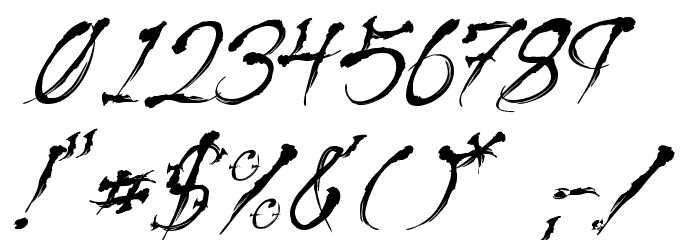 0123456789
!"#$%&()*,-./